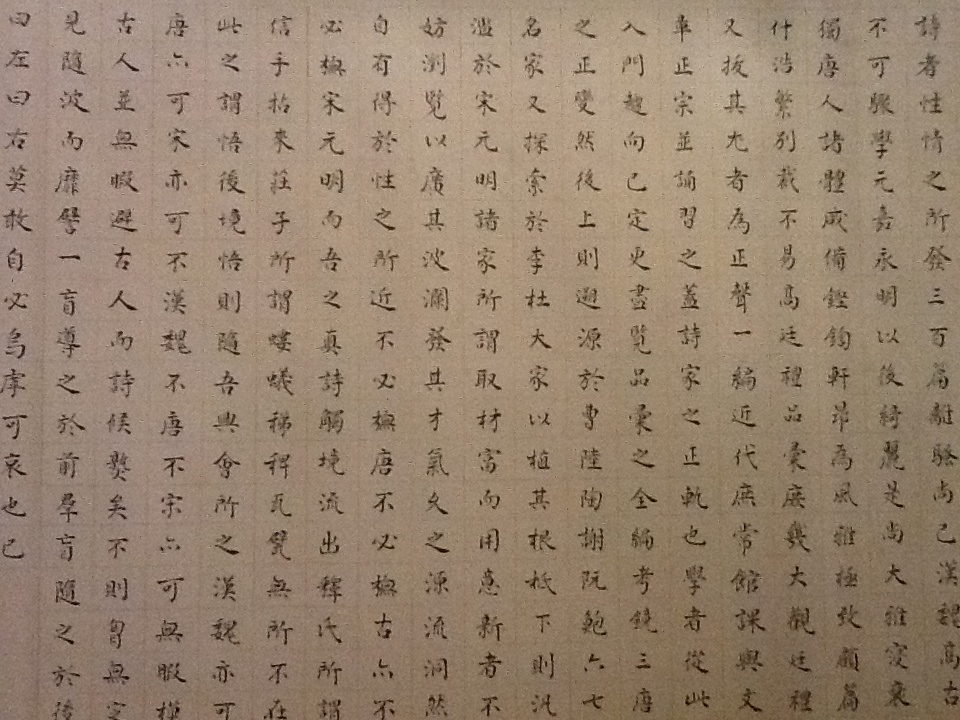 詩者性情之所發三百篇離騷尚已漢魏高古
不可驟學元嘉永明以後綺麗是尚大雅寖衰
獨唐人諸體咸備鏗鈞軒昂為風雅極致顧篇
什浩繁別裁不易高廷禮品彙庶幾大觀廷禮
又拔其尤者為正聲一編近代庶常館課與文
章正宗並誦習之蓋詩家之正軌也學者從此
入門趨向已定更盡覽品彙之全編考鏡三唐
之正變然後上則遡源於曹陸陶謝阮鮑六七
名家又探索於李杜大家以植其根柢下則汎
濫於宋元明諸家所謂取材富而用意新者不
妨瀏覽以廣其波瀾發其才氣久之源流洞然
自有得於性之所近不必橅唐不必橅古亦不
必橅宋元明而吾之真詩觸境流出釋氏所謂
信手拈來莊子所謂螻蟻稊稗瓦甓無所不在
此之謂悟後境悟則隨吾興會所之漢魏亦可
唐亦可宋亦可不漢魏不唐不宋亦可無暇模
古人並無暇避古人而詩候熟矣不則胷無定
見隨波而靡譬一盲導之於前羣盲隨之於後
曰左曰右莫敢自必烏虖可哀也已